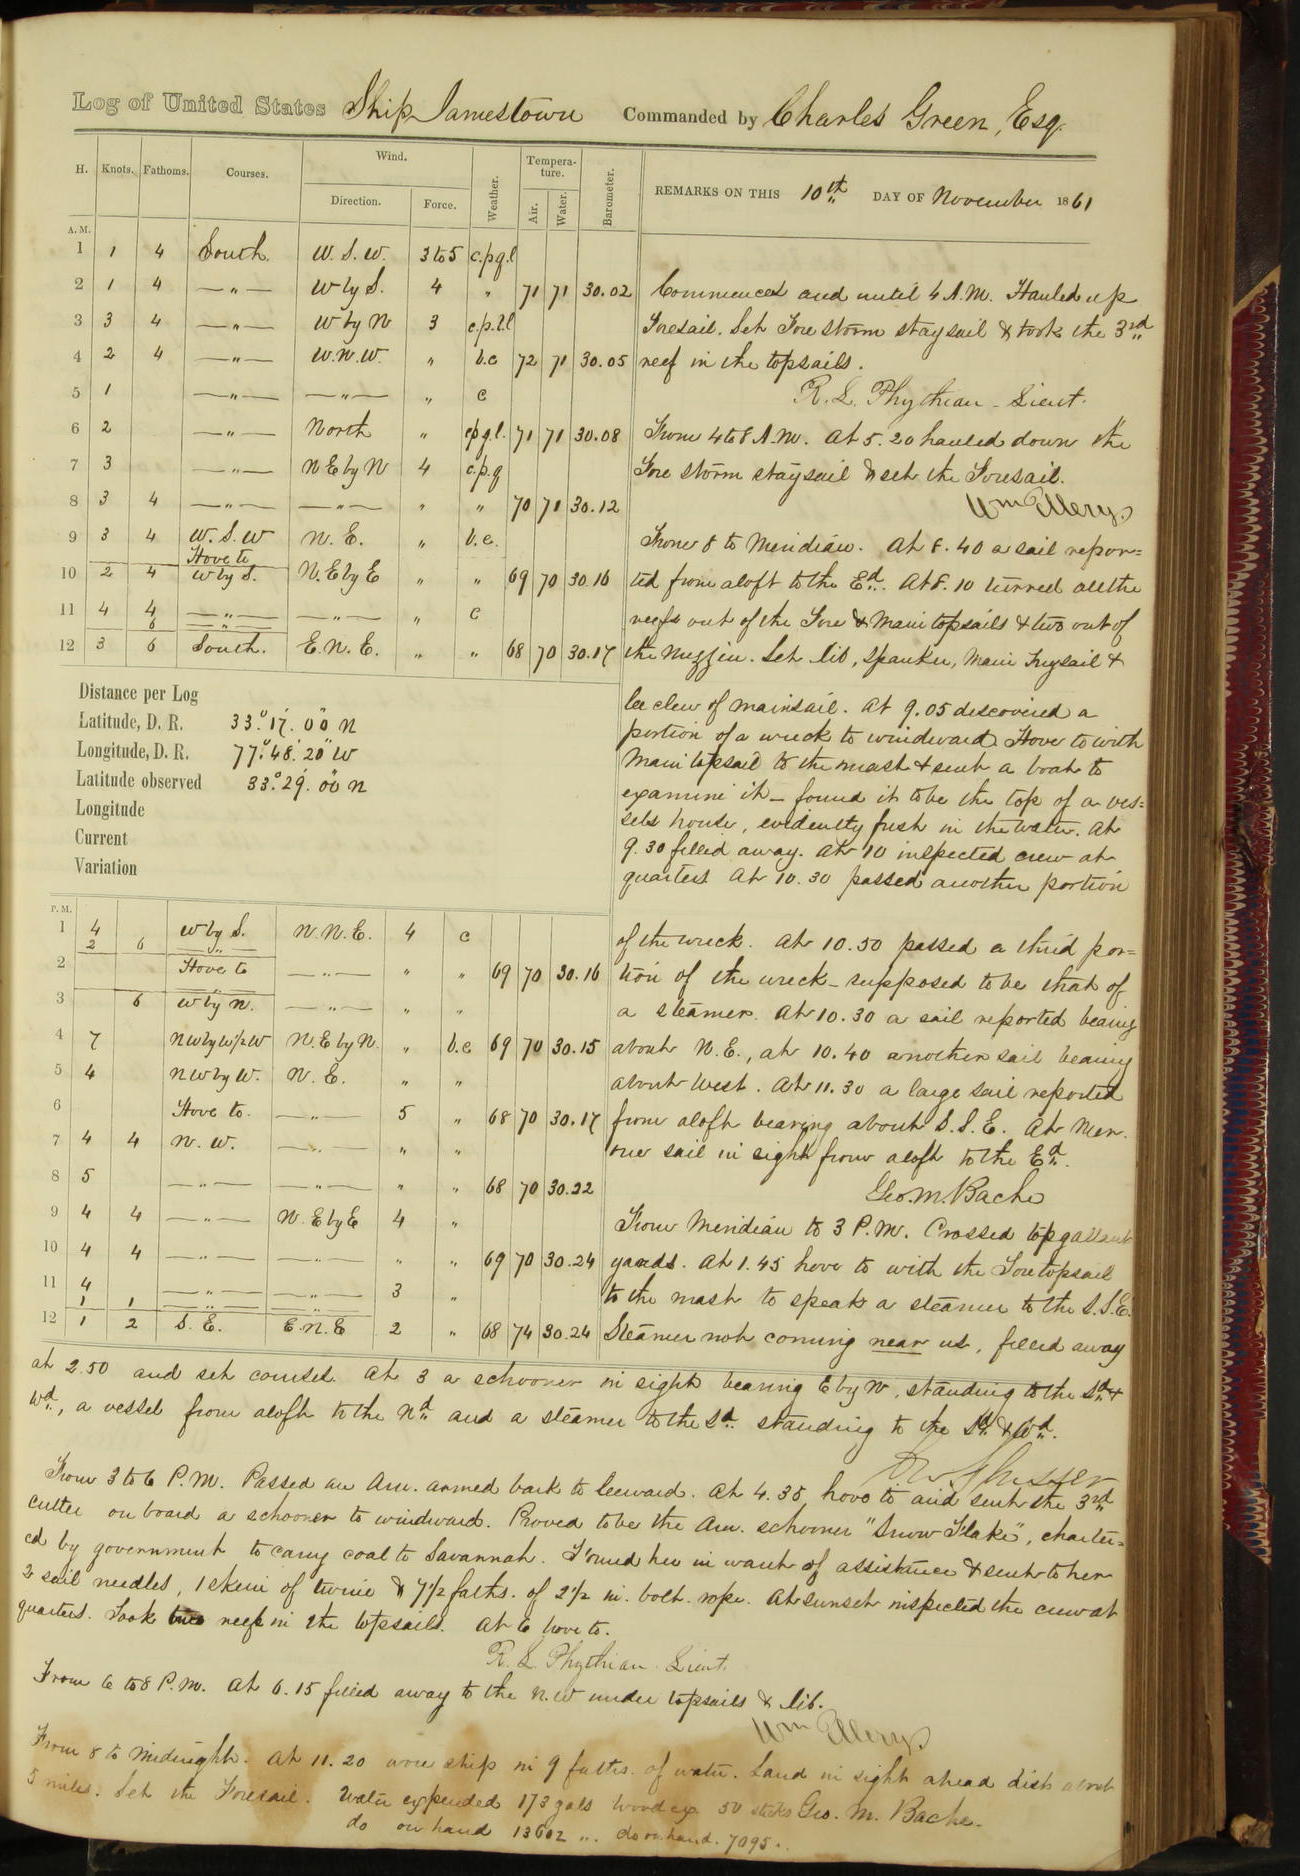 Log of United States Ship Jamestown Commanded by Charles Green, Esq.
H. Knots. Fathoms. Courses. Wind. Direction. Force. Weather. Tempera-ture. Air. Water. Barometer. REMARKS ON THIS 10th DAY OF November 1861
A.M.
1 1 4 South. W.S.W. 3 to 5 c.p.q.l
2 1 4 —"— W by S. 4 " 71 71 30.02 Commences and until 4 A.M. Hauled up
3 3 4 —"— W by N 3 c.p.l.l Foresail. Set Fore storm staysail & took the 3rd
4 2 4 —"— W.N.W. " b.c 72 71 30.05 reef in the topsails.
5 1 —"— —"— " c R. L. Phythian - Lieut.
6 2 —"— North " c.p.q.l. 71 71 30.08 From 4 to 8 A.M. At 5.20 hauled down the
7 3 —"— N.E by N 4 c.p.q Fore storm staysail & set the Foresail.
8 3 4 —"— —"— " " 70 71 30.12 Wm Ellery.
9 3 4 W.S.W N.E. " b.c. From 8 to Meridian. At 8.40 a sail repor=
Hove to
10 2 4 W by S. N.E by E " " 69 70 30.16 ted from aloft to the Ed. At 8.10 turned all the
11 4 4 —"— —"— " c reefs out of the Fore & Main topsails & two out of
6 —"—
12 3 6 South. E.N.E. " " 68 70 30.17 the Mizzen. Set Jib, Spanker, Main Trysail &
Distance per Log
Latitude, D. R. 33° 17' 00" N
Longitude, D. R. 77° 48' 20" W
Latitude observed 33° 29' 00" N
Longitude
Current
Variation
lee clew of mainsail. At 9.05 discovered a
portion of a wreck to windward. Hove to with
Main topsail to the mast & sent a boat to
examine it — found it to be the top of a ves=
sels house, evidently fresh in the water. At
9.30 filled away. At 10 inspected crew at
quarters. At 10.30 passed another portion
P.M.
1 4 W by S. N.N.E. 4 c of the wreck. At 10.50 passed a third por=
2 6 —"—
2 Hove to —"— " " 69 70 30.16 tion of the wreck — supposed to be that of
3 6 W by N. —"— " " a steamer. At 10.30 a sail reported bearing
4 7 NW by W½W N.E by N. " b.c 69 70 30.15 about N.E., at 10.40 another sail bearing
5 4 NW by W. N.E. " " about West. At 11.30 a large sail reported
6 Hove to. —"— 5 " 68 70 30.17 from aloft bearing about S.S.E. At Mer.
7 4 4 N.W. —"— " " one sail in sight from aloft to the Ed.
8 5 —"— —"— " " 68 70 30.22 Geo. M. Bache
9 4 4 —"— N.E by E 4 " From Meridian to 3 P.M. Crossed topgallant
10 4 4 —"— —"— " " 69 70 30.24 yards. At 1.45 hove to with the Fore topsail
11 4 —"— —"— 3 " to the mast to speak a steamer to the S.S.E.
1 1 —"— —"—
12 1 2 S.E. E.N.E 2 " 68 74 30.24 Steamer not coming near us, filled away
at 2.50 and set courses. At 3 a schooner in sight bearing E by N, standing to the Sd &
Wd, a vessel from aloft to the Nd and a steamer to the Sd standing to the Sd & Wd.
From 3 to 6 P.M. Passed an Am. armed bark to leeward. At 4.35 hove to and sent the 3rd
cutter on board a schooner to windward. Proved to be the Am. schooner "Snow Flake", charter=
ed by government to carry coal to Savannah. Found her in want of assistance & sent to her
2 sail needles, 1 skein of twine & 7½ faths. of 2½ in. bolt rope. At sunset inspected the crew at
quarters. Took two reefs in the topsails. At 6 hove to.
R. L. Phythian. Lieut.
From 6 to 8 P.M. At 6.15 filled away to the N.W under topsails & Jib.
Wm Ellery.
From 8 to Midnight. At 11.20 wore ship in 9 faths. of water. Land in sight ahead dist. about
5 miles. Set the Foresail. Water expended 173 gals Wood ex 50 sticks Geo. M. Bache.
do on hand 13602 " . do on hand. 7095.